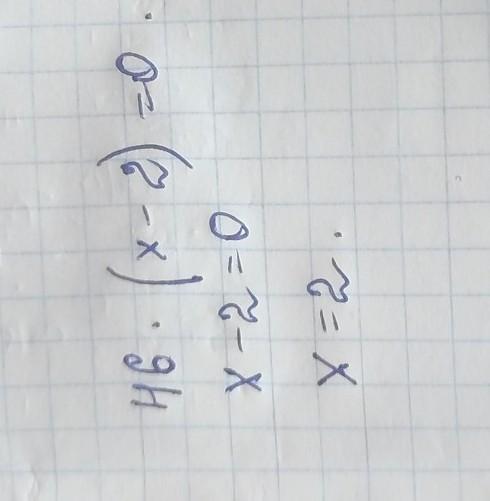 46 · (x - 2) = 0.
x - 2 = 0
x = 2.